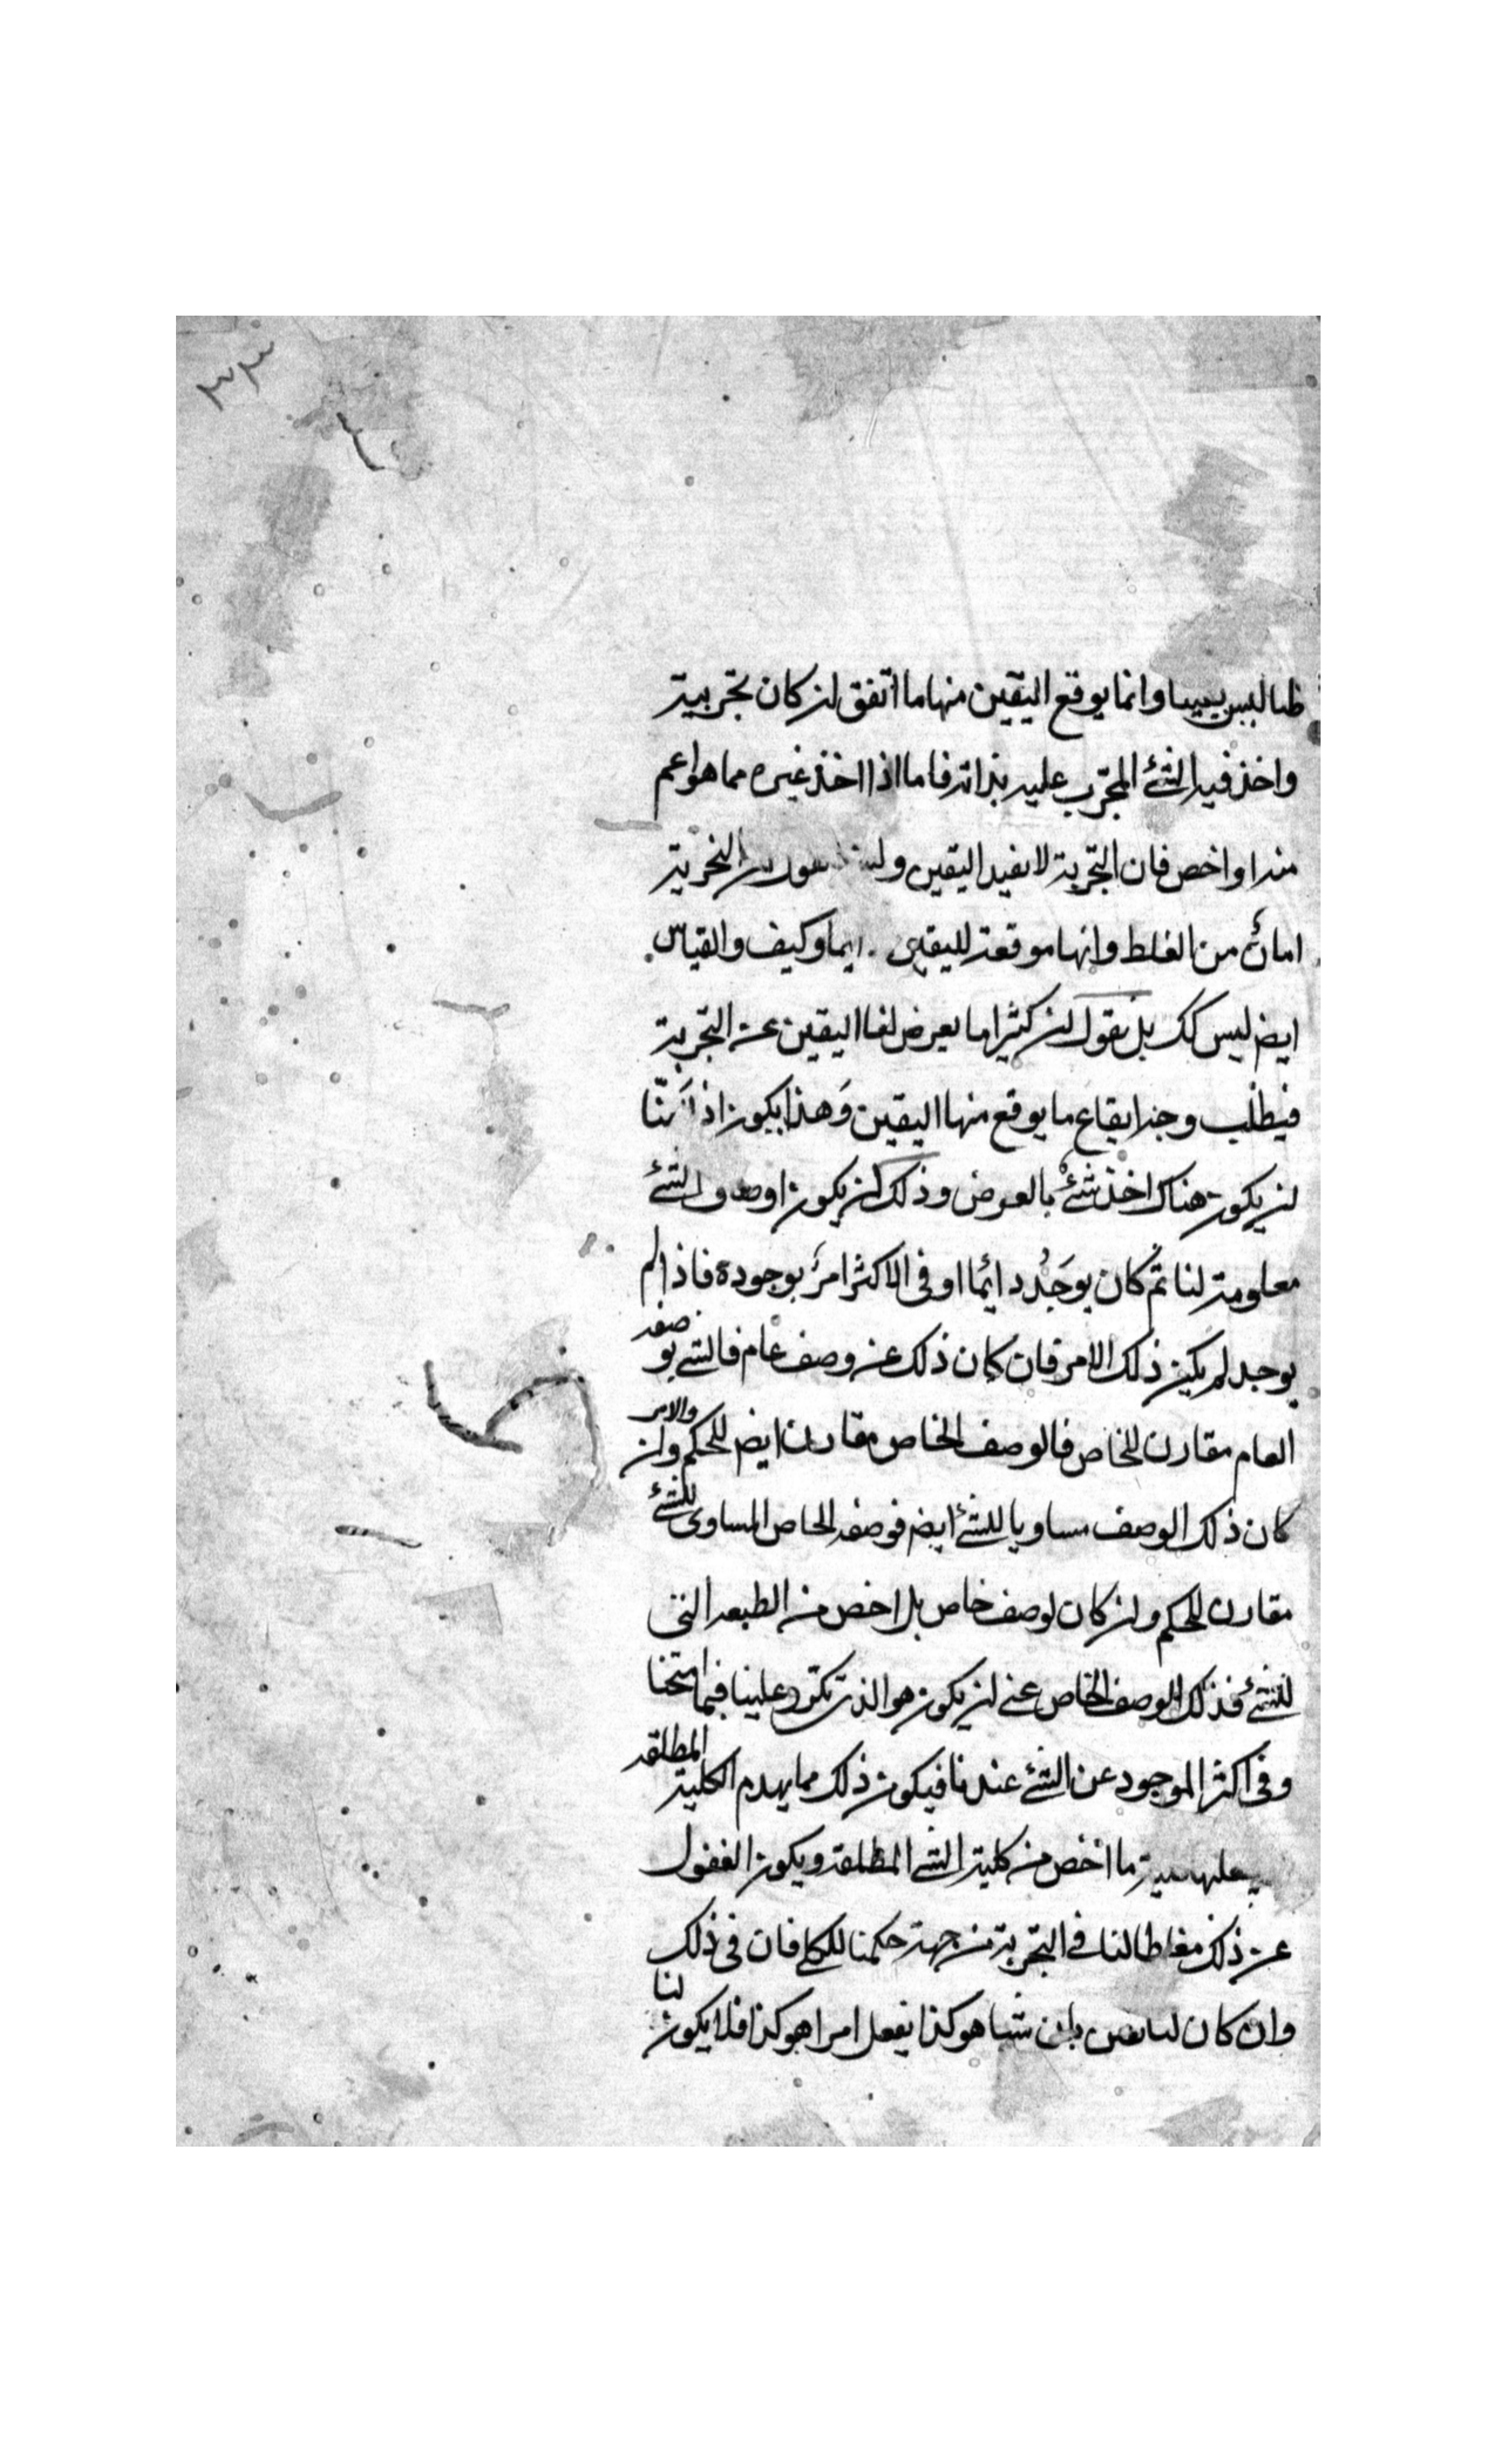 ٣٣
ظنا ليس يقينا وانما يوقع اليقين منها ما اتفق ان كان تجربية
واخذ فيه الشئ المجرّب عليه بذاته فاما اذا اخذ غيره مما هو اعم
منه او اخص فان التجربة لا تفيد اليقين ولسنا نقول ان التجربة
امانٌ من الغلط وانها موقعة لليقين دايما وكيف والقياس
ايضا ليس كك بل نقول ان كثيرا ما يعرض لنا اليقين عن التجربة
فيطلب وجه ايقاع ما يوقع منها اليقين وَهذا يكون اذا اَمنّا
ان يكون هناك اخذ شئٌ بالعرض وذلك ان يكون اوصاف الشئ
معلومة لنا ثم كان يوجَدُ دائما او فى الاكثر امرٌ بوجوده فاذا لم
يوجد لم يكن ذلك الامر فان كان ذلك عن وصف عام فالشئ بوصفه
العام مقارن للخاص فالوصف الخاص مقارن ايضا للحكم والامر وان
كان ذلك الوصف مساويا للشئ ايضا فوصفه الخاص المساوى للشئ
مقارن للحكم وان كان لوصف خاص بل اخص من الطبيعة التى
للشئ فذلك الوصف الخاص عسى ان يكون هو الذى تكرّر علينا فيما امتحنا
وفى اكثر الموجود عن الشئ عندنا فيكون ذلك مما يهدم الكلية المطلقه
يجعلها كلية ما اخص من كلية الشئ المطلقة ويكون الغفول
عن ذلك مغلطا لنا فى التجربة من جهة حكمنا الكلى فان فى ذلك
وان كان لنا يقين بان شيئا هو كذا يفعل امرا هو كذا فلا يكون لنا